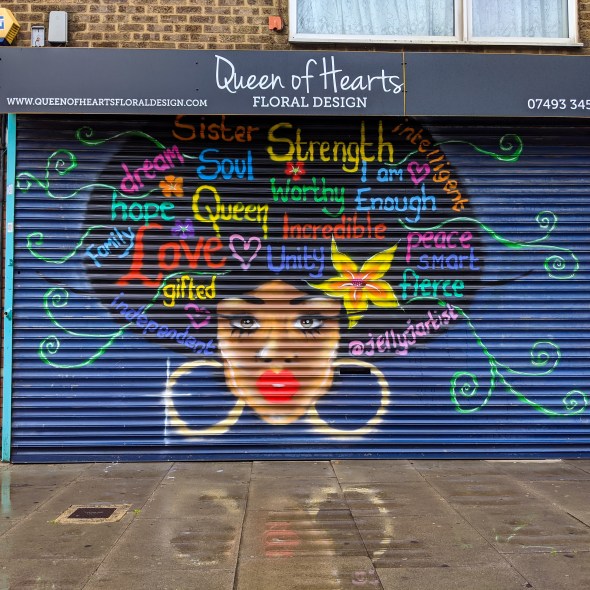 Queen of Hearts
FLORAL DESIGN
WWW.QUEENOFHEARTSFLORALDESIGN.COM
07493 345
Sister
Strength
intelligent
dream
Soul
I am
Worthy
Enough
hope
Queen
Incredible
Family
Love
Unity
peace
smart
gifted
fierce
Independant
@jellyjartist